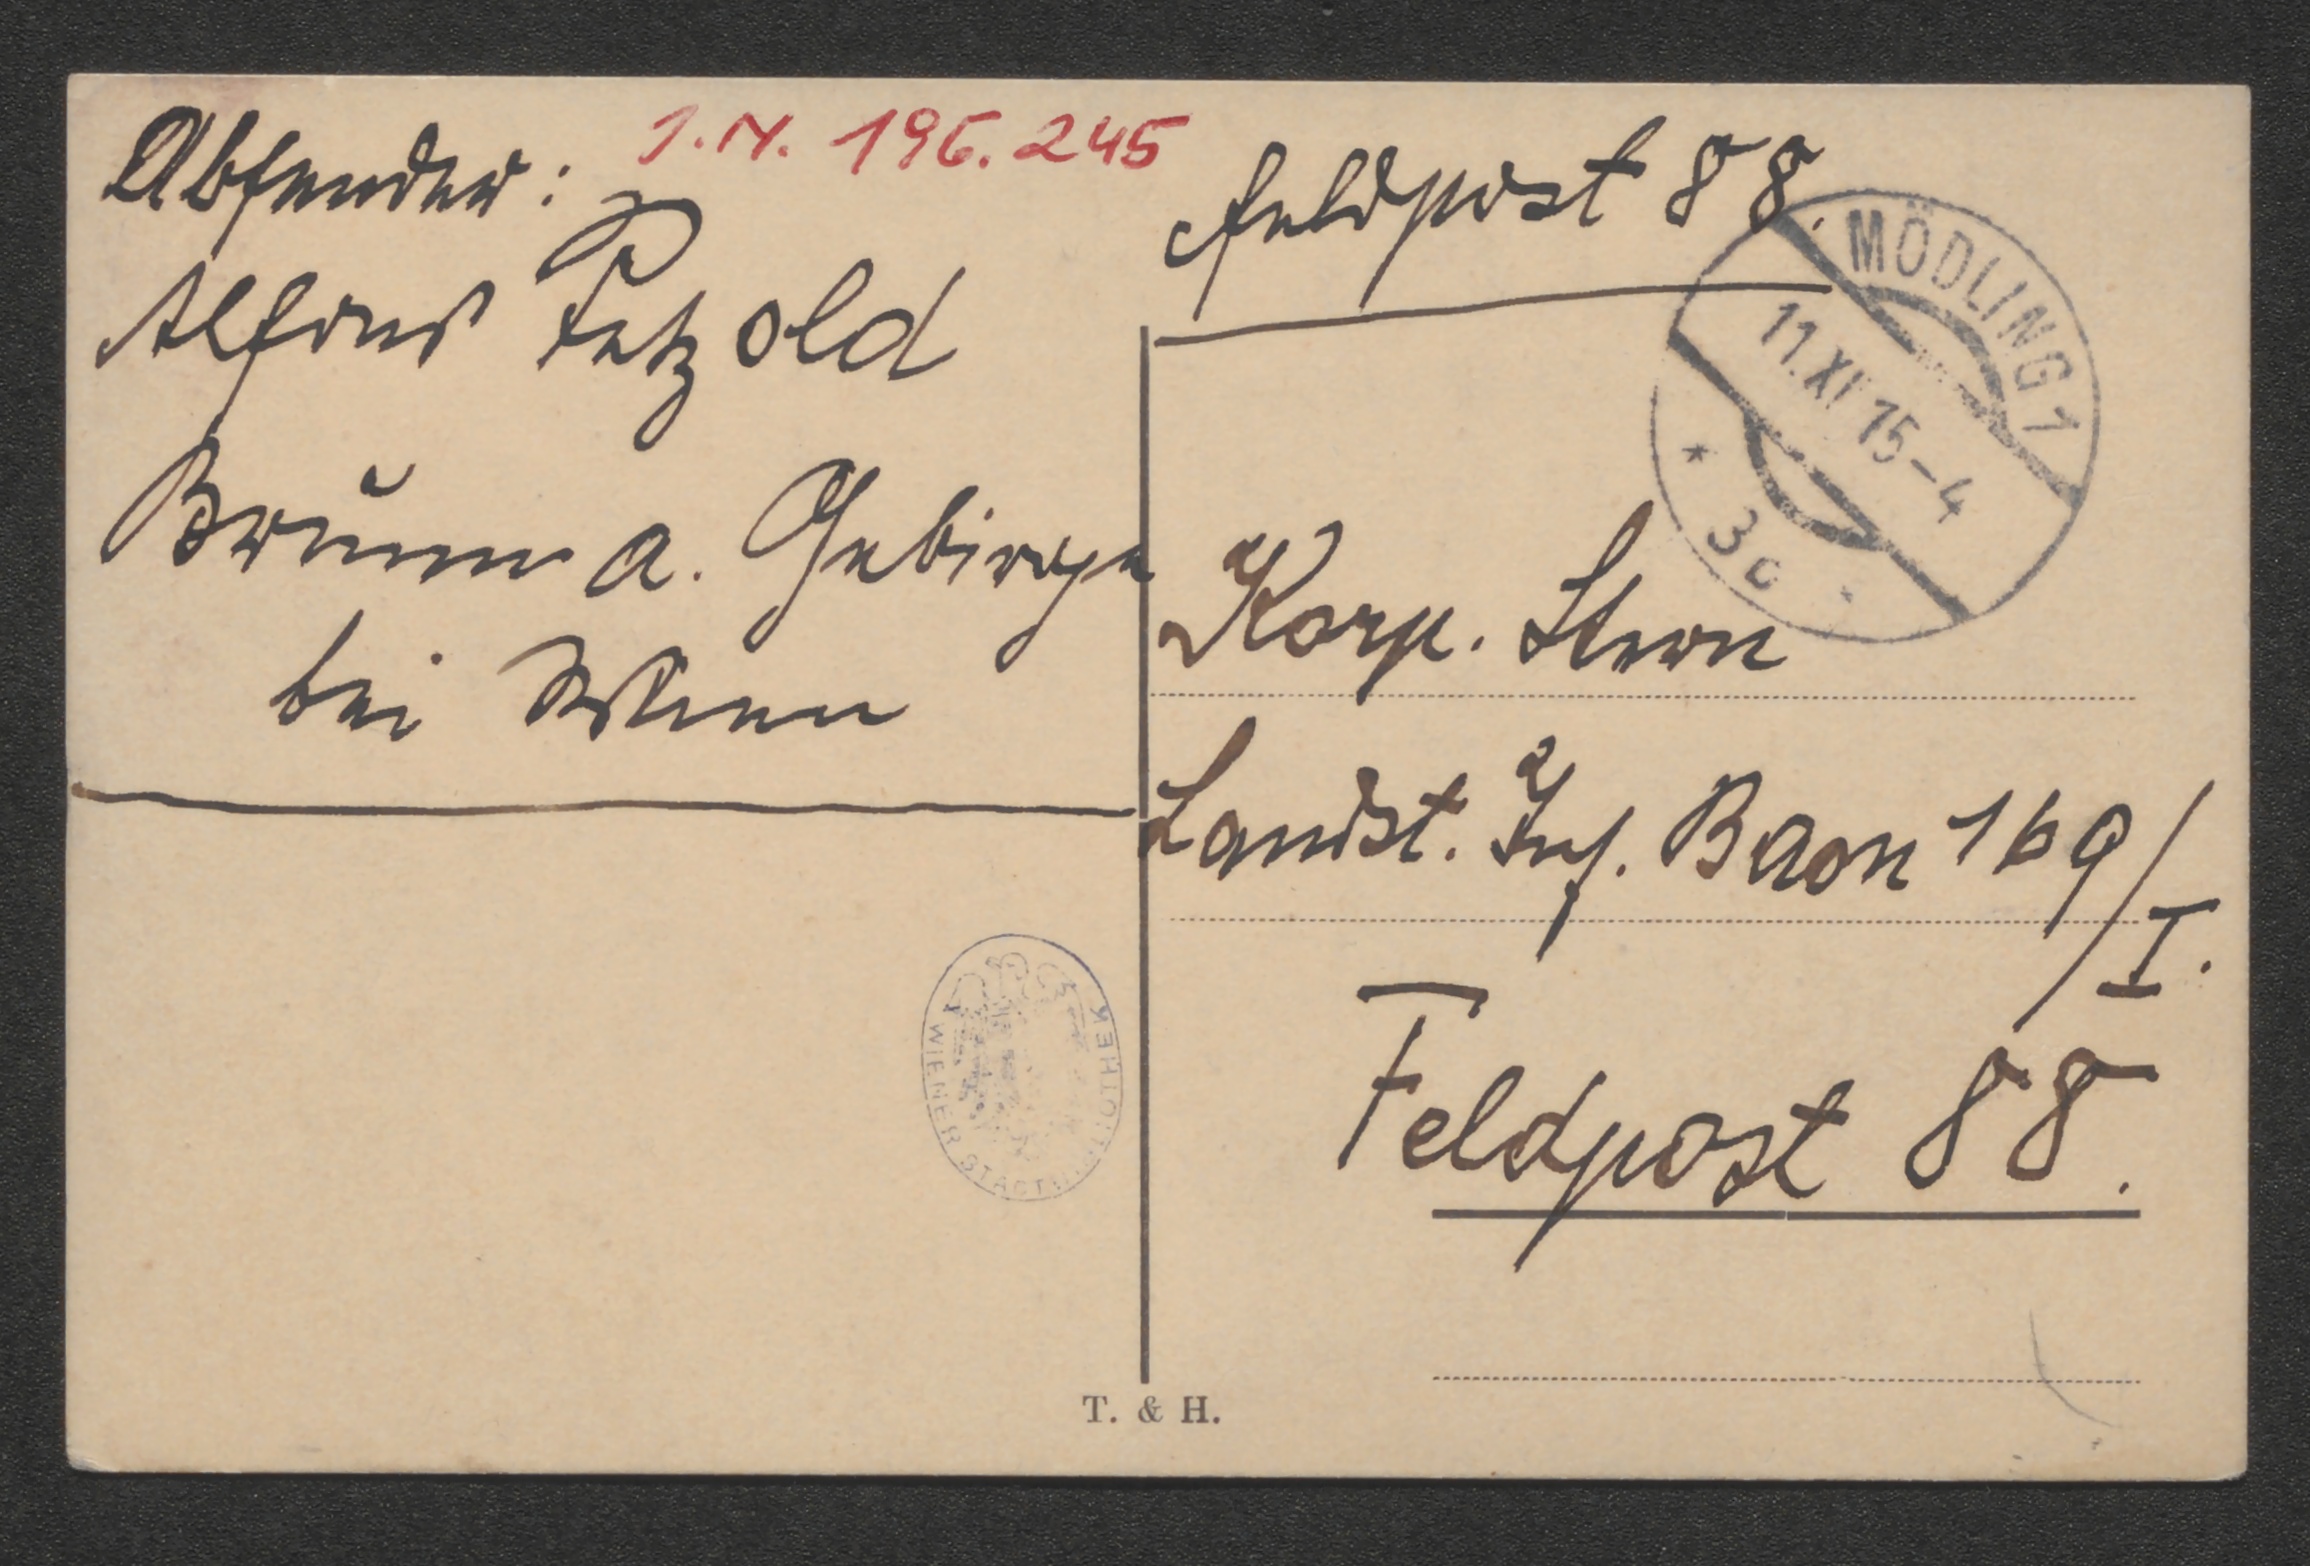 Absender:
J.N. 196.245
Alfons Petzold
Brunn a. Gebirge
bei Wien
Feldpost 88.
MÖDLING 1
11.XI 15-4
* 3c *
Korp. Stern
Landst. Inf. Baon 169/I.
Feldpost 88.
WIENER STADTBIBLIOTHEK
T. & H.